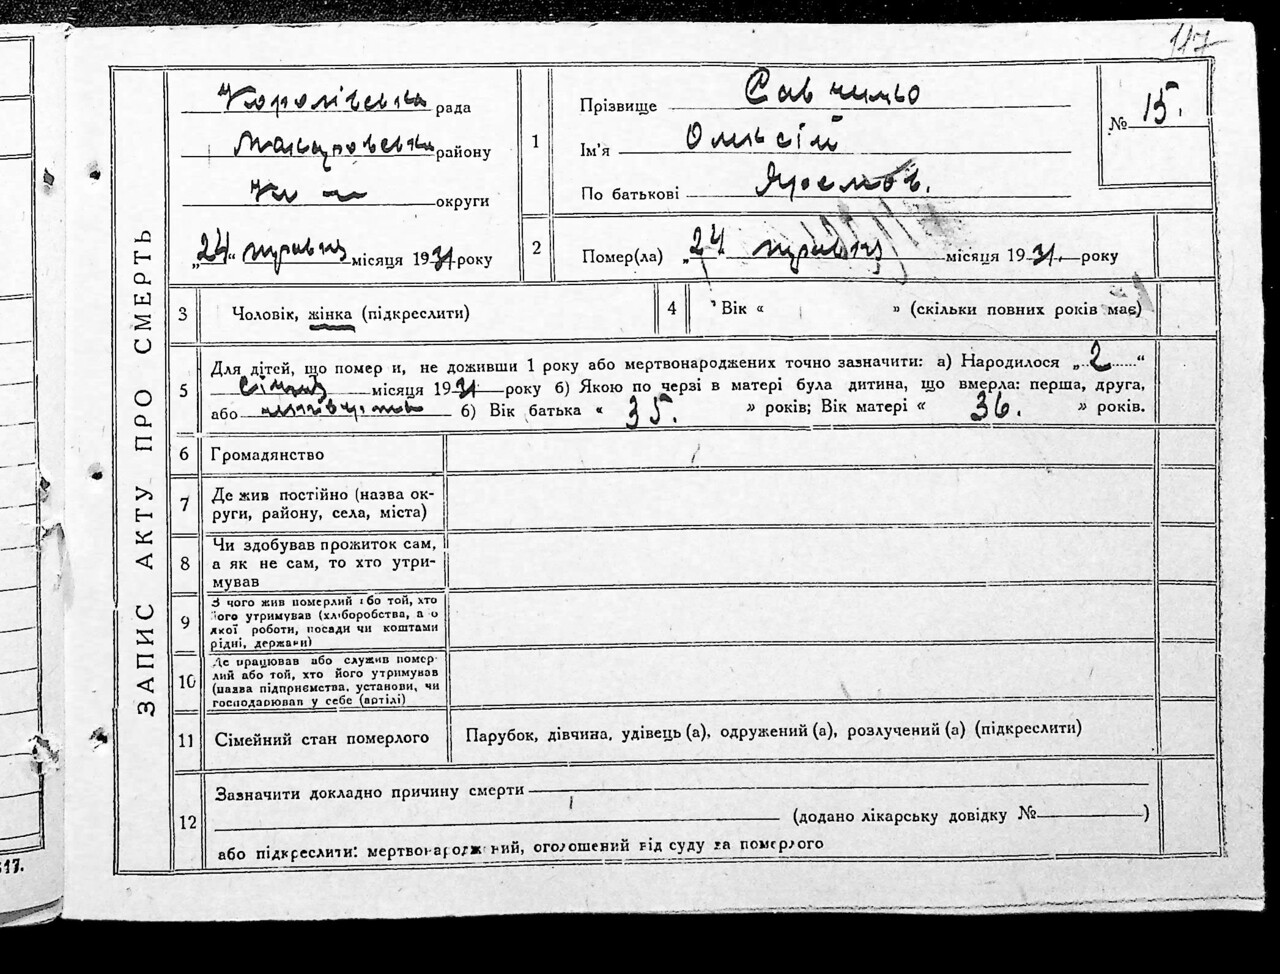 117
Королівська рада
Макарівська району
округи
№ 15.
1
Прізвище Савченко
Ім'я Олексій
По батькові Яремов.
„24“ травня місяця 1931 року
2
Помер(ла) „24 травня місяця 1931. року
ЗАПИС АКТУ ПРО СМЕРТЬ
3
Чоловік, жінка (підкреслити)
4
Вік « » (скільки повних років має)
5
Для дітей, що помер и, не доживши 1 року або мертвонароджених точно зазначити: а) Народилося „2“
січня місяця 1931 року б) Якою по черзі в матері була дитина, що вмерла: перша, друга,
або б) Вік батька « 35. » років; Вік матері « 36. » років.
6
Громадянство
7
Де жив постійно (назва ок-
руги, району, села, міста)
8
Чи здобував прожиток сам,
а як не сам, то хто утри-
мував
9
З чого жив померлий або той, хто
його утримував (хліборобства, а о
якої роботи, посади чи коштами
рідні, держави)
10
Де працював або служив помер-
лий або той, хто його утримував
(назва підприємства, установи, чи
господарював у себе (артілі)
11
Сімейний стан померлого
Парубок, дівчина, удівець (а), одружений (а), розлучений (а) (підкреслити)
12
Зазначити докладно причину смерти
(додано лікарську довідку № )
або підкреслити: мертвонароджений, оголошений від суду за померлого
617.